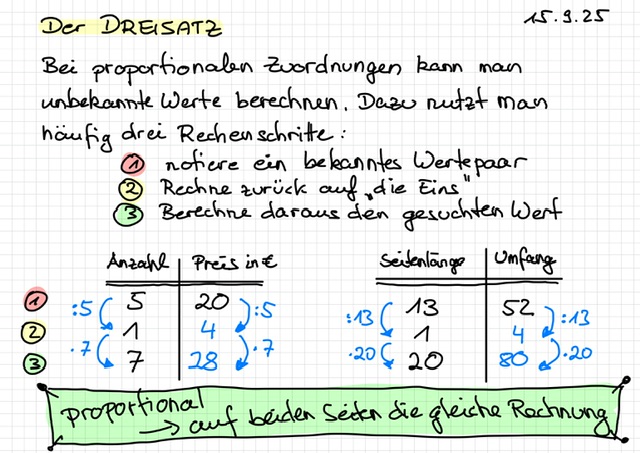 Der DREISATZ 15.9.25
Bei proportionalen Zuordnungen kann man
unbekannte Werte berechnen. Dazu nutzt man
häufig drei Rechenschritte:
1 notiere ein bekanntes Wertepaar
2 Rechne zurück auf „die Eins"
3 Berechne daraus den gesuchten Wert
Anzahl Preis in € Seitenlänge Umfang
1 :5 5 20 :5 :13 13 52 :13
2 1 4 1 4
3 ·7 7 28 ·7 ·20 20 80 ·20
proportional
→ auf beiden Seiten die gleiche Rechnung